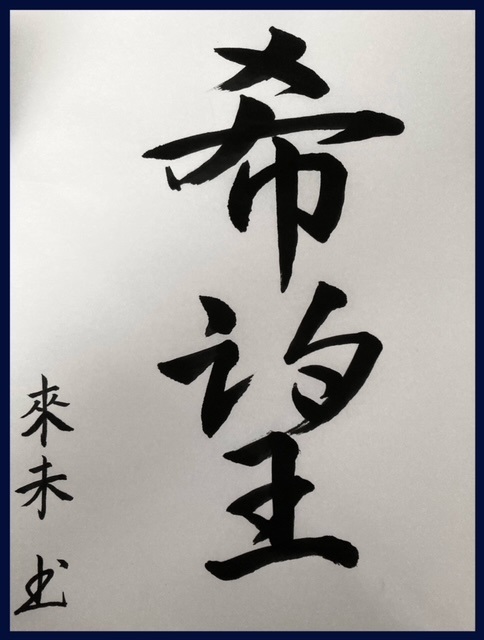 希望
來未 书